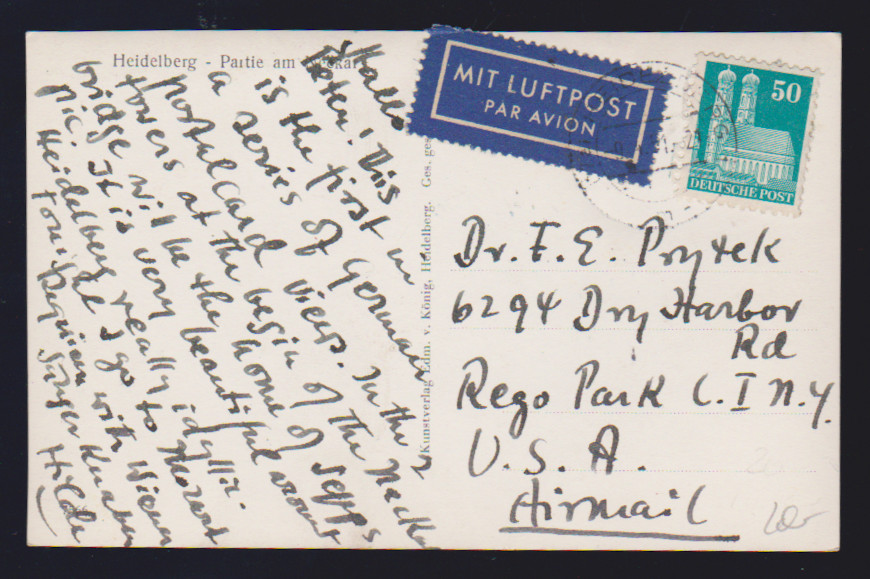 Heidelberg - Partie am Neckar
MIT LUFTPOST
PAR AVION
50
DEUTSCHE POST
Hallo
Peter! This in
is the first German
a series of views. In the Neckar
postalcard begin of the Sepps
towers at the home of
bridge will be the beautiful around
Pic. It is very really idyllic.
Heidelberg I go to Mozart
tonight with Wiener
Requiem Knaben
Sänger
Hilde
Kunstverlag Edm. v. König, Heidelberg. Ges. ges
Dr. F. E. Prytek
6294 Dry Harbor
Rd
Rego Park L.I N.Y.
U. S. A.
Airmail